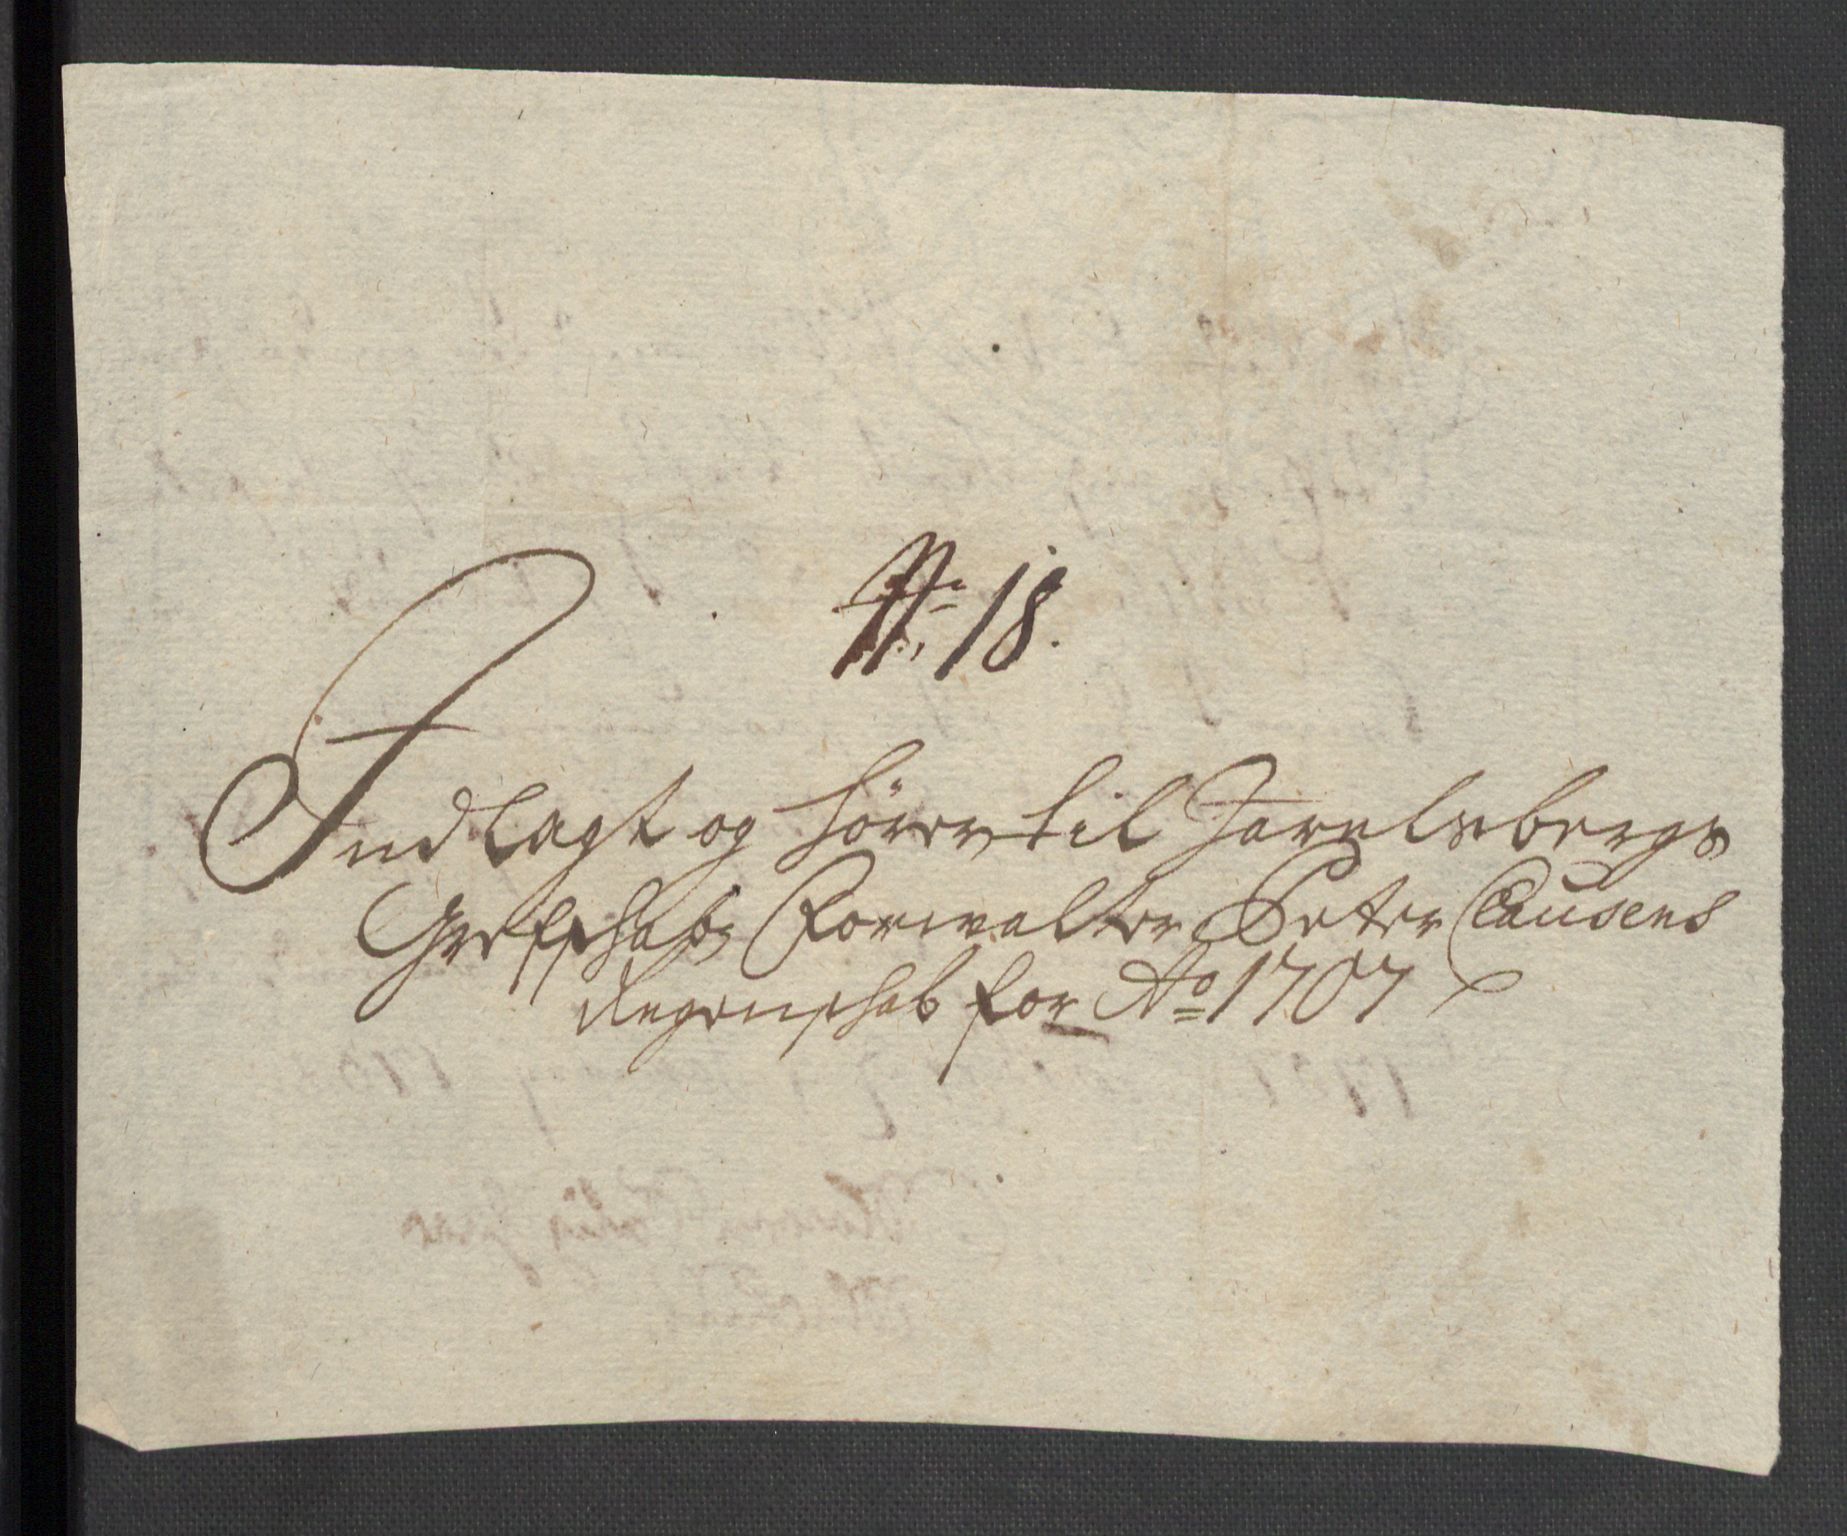 No: 18.
Indlagt og hörer til Jarelsbergs
Grefschabs Forwalter Peter Clausens
Regenschab for Ao 1707